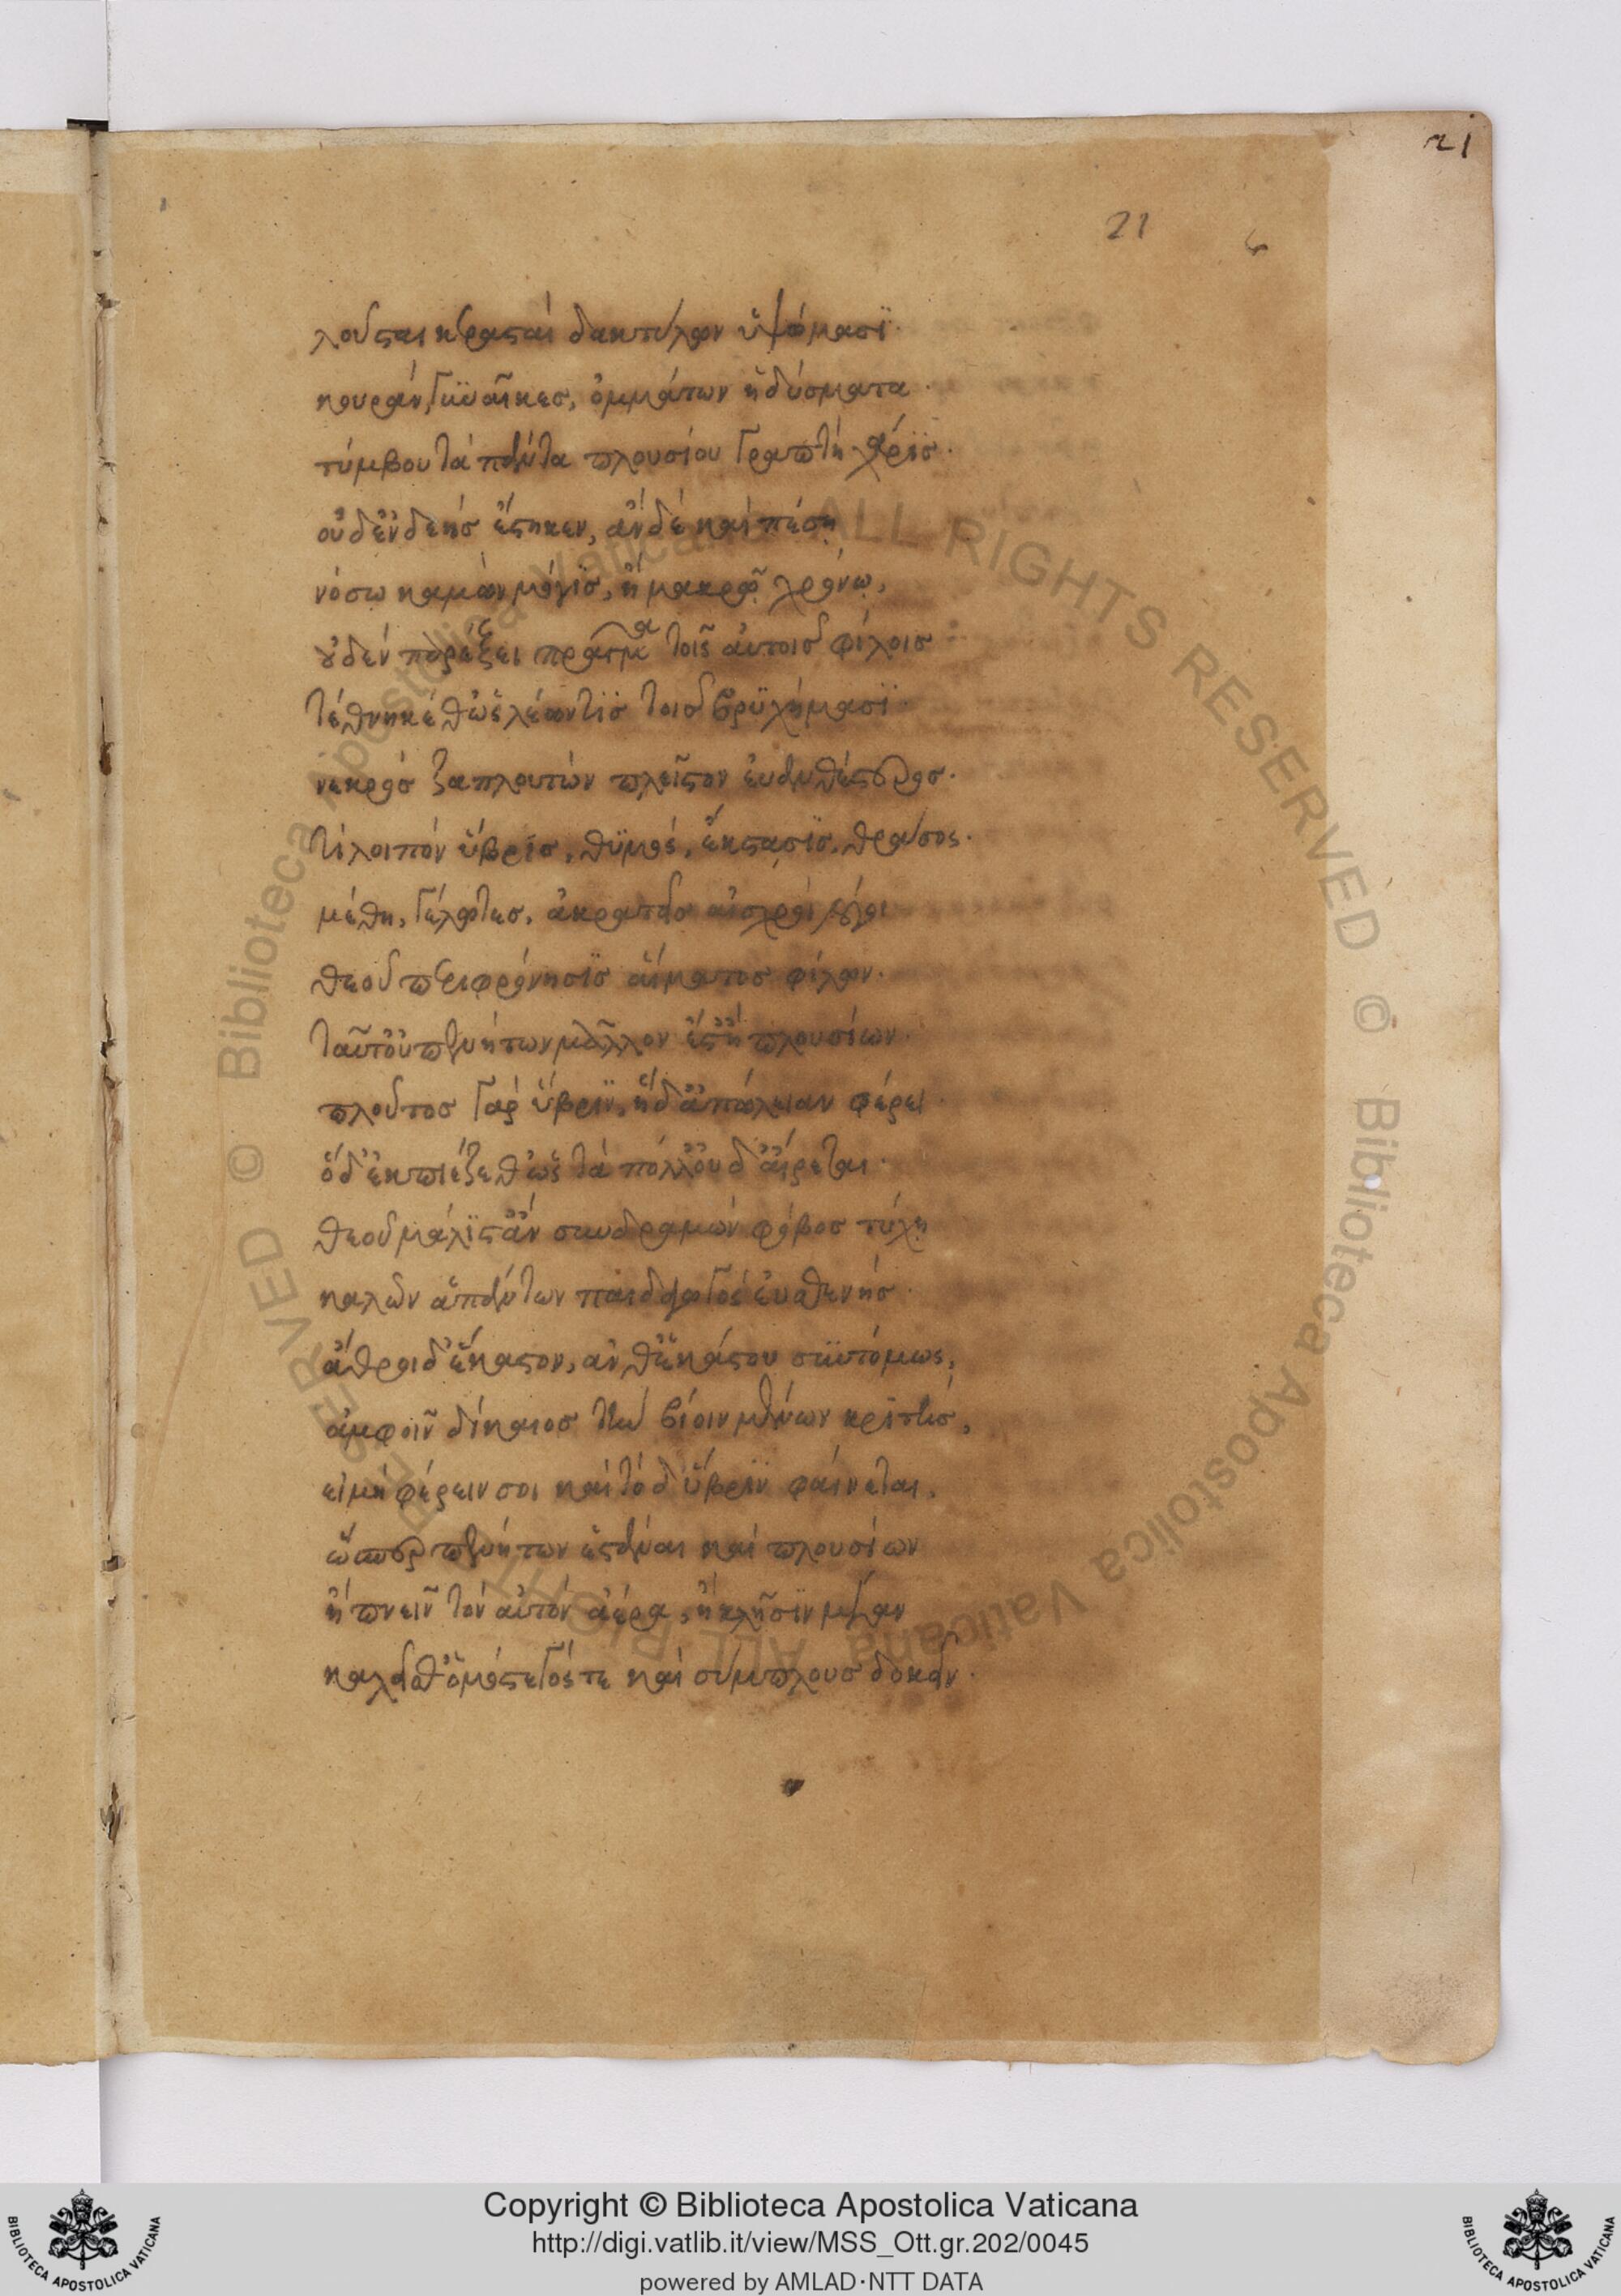 21
21
λοῦσται κερασταὶ δακτύλων ὑψώμασϊ·
κουρῶν, γυναῖκες, ὀμμάτων ἡδύσματα·
τύμβου τὰ πάντα πλουσίου γραπτὴ χάρϊς·
οὐδ' ἐνδεὴς ἕστηκεν, ἂν δὲ καὶ πέση
νόσω καμὼν μόγϊς, ἢ μακρῶ χρόνω,
οὐδὲν παρέξει πράγμα τοῖς αὐτοῖς φίλοις
τέθνηκέ θ' ὡς λέων τϊς τοῖς βρϋχήμασϊ
νεκρὸς ζαπλουτῶν πλεῖστον
τί λοιπὸν ὕβρϊς, θϋμός, ἔκστασϊς, θράσος·
μέθη, γέλωτες, ἀκρατεῖς αἰσχροὶ λόγοι
θεοῦ περιφρόνησϊς αἵματος φίλων·
ταῦτ' οὐ πενήτων μᾶλλον ἔστ' ἢ πλουσίων·
πλοῦτος γὰρ ὕβρϊν, ἥδ' ἀπώλειαν φέρει·
ὁ δ' ἐκπιέζεθ' ὡς τὰ πόλλ' οὐδ' αἴρεται·
θεοῦ μάλϊστ' ἂν συνδραμὼν φόβος τύχη
καλῶν ἁπάντων παιδαγωγὸς εὐσθενής·
ἄθροιδ' ἕκαστον, ἀνθ' ἑκάστου συντόμως,
ἀμφοῖν δίκαιος τοῖν βίοιν μένων κρϊτὴς,
εἰ μὴ φέρειν σοι καὶ τόδ' ὕβρϊν φαίνεται,
ὥσπερ πενήτων ἑστάναι καὶ πλουσίων
ἢ πνεῖν τὸν αὐτὸν ἀέρα, ἢ κλῆσϊν μίαν
καλεῖσθ' ὁμόστεγός τε καὶ σύμπλους δοκεῖν·
Copyright © Biblioteca Apostolica Vaticana
http://digi.vatlib.it/view/MSS_Ott.gr.202/0045
powered by AMLAD·NTT DATA
BIBLIOTECA APOSTOLICA VATICANA
BIBLIOTECA APOSTOLICA VATICANA
© Biblioteca Apostolica Vaticana ALL RIGHTS RESERVED © Biblioteca Apostolica Vaticana ALL RIGHTS RESERVED